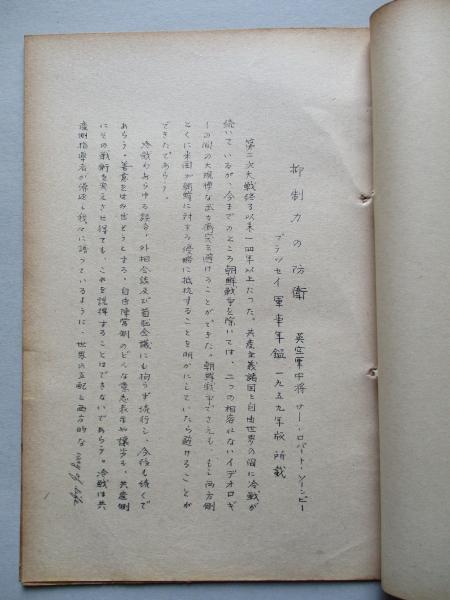 抑制力の防衛
英空軍中将 サー・ロバート・ソーンビー
ブラッセイ 軍事年鑑 一九五九年版 所載
第二次大戦終了以来一四年以上たった。共産主義諸国と自由世界の間に冷戦が
続いているが、今までのところ朝鮮戦争を除いては、二つの相容れないイデオロギ
ーの間の大規模な武力衝突を避けることができた。朝鮮戦争でさえも、もし西方側
とくに米国が朝鮮に対する侵略に抵抗することを明かにしていたら避けることが
できたであろう。
冷戦はあらゆる談合、外相会議及び首脳会議にも拘らず続行し、今後も続くで
あろう。善意をはみ出そうとする、自由陣営側のどんな意志表示や譲歩も、共産側
にその戦術を変えさせ得ても、これを説得することはできないであろう。冷戦は共
産側指導者が屡々我々に語っているように、世界の支配と西方的な way of life